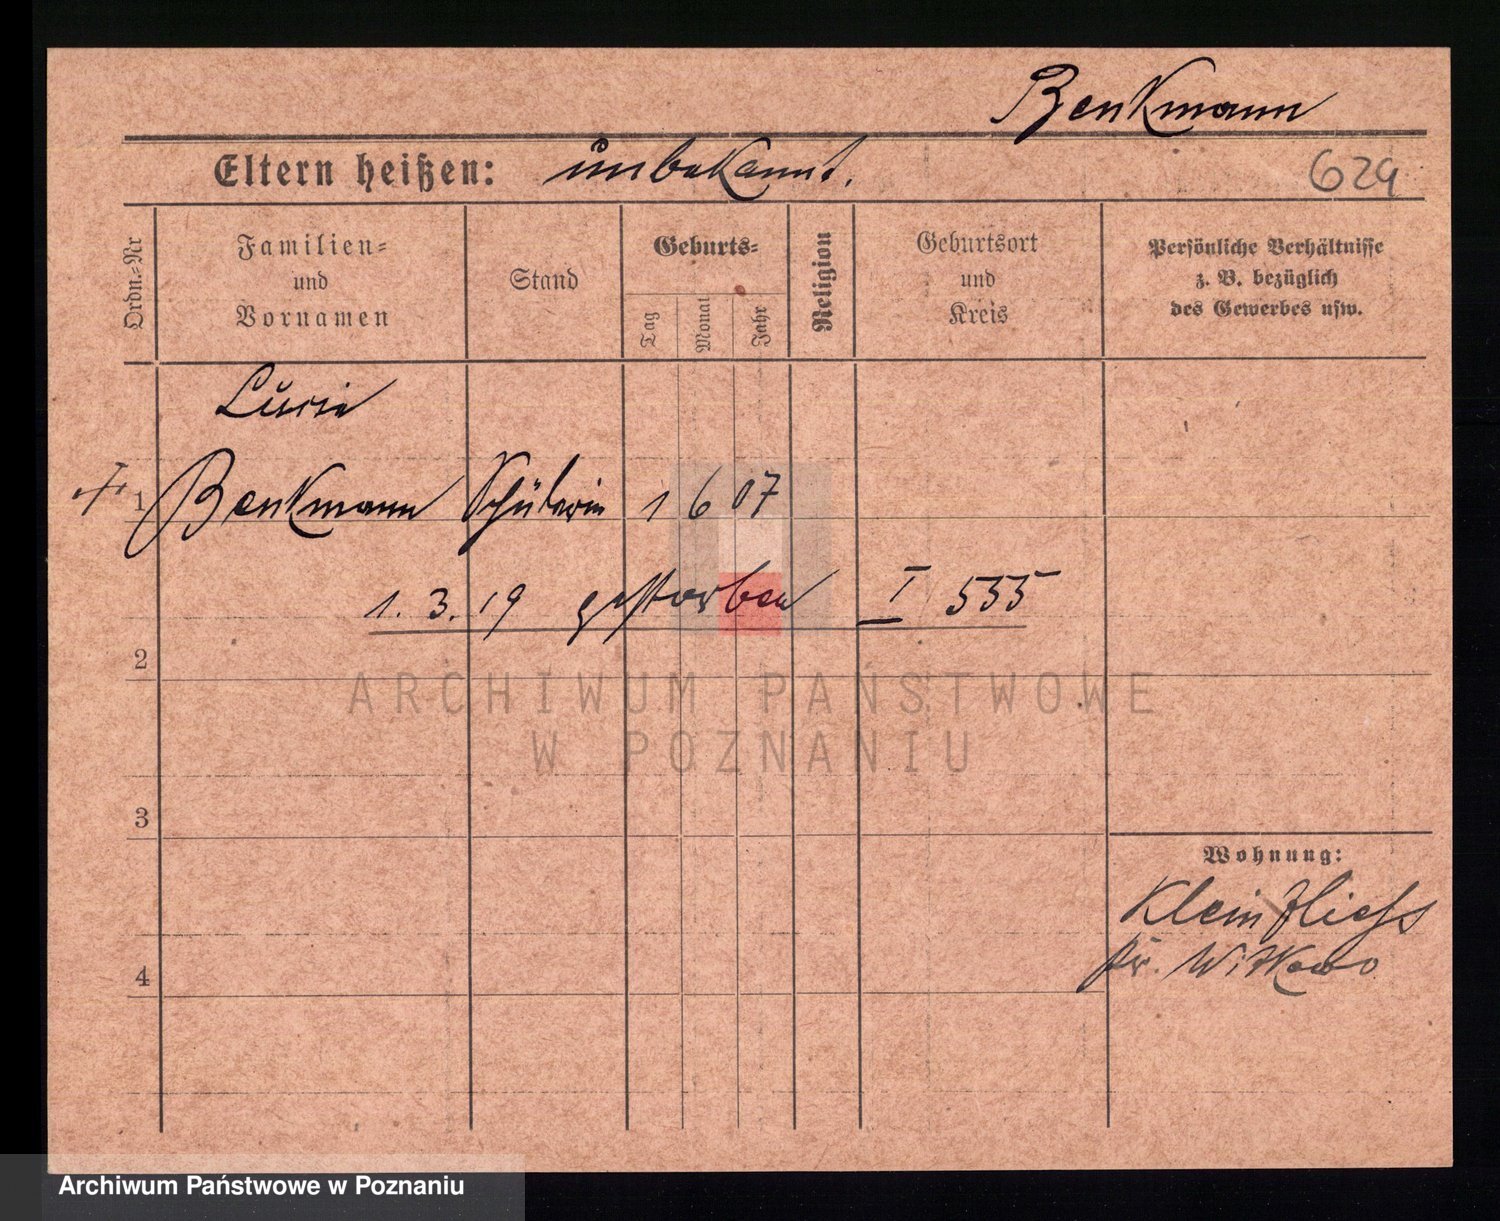 Benkmann
Eltern heißen: unbekannt.
629
Ordn.=Nr
Familien=
und
Vornamen
Stand
Geburts=
Tag
Monat
Jahr
Religion
Geburtsort
und
Kreis
Persönliche Verhältnisse
z. B. bezüglich
des Gewerbes usw.
Lucie
1 Benkmann Schülerin 1 6 07
1. 3. 19 gestorben I 535
2
ARCHIWUM PAŃSTWOWE
W POZNANIU
3
Wohnung:
Klein Fliess
Kr. Witkowo
4
Archiwum Państwowe w Poznaniu